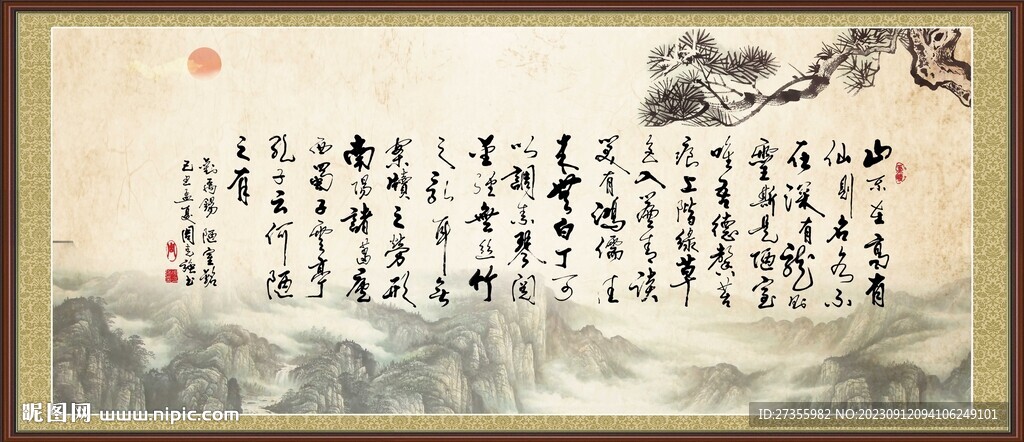 山不在高有
仙則名水不
在深有龍則
靈斯是陋室
唯吾德馨苔
痕上階綠草
色入簾青談
笑有鴻儒往
来無白丁可
以調素琴閱
金經無絲竹
之亂耳無
案牘之勞形
南陽諸葛廬
西蜀子雲亭
孔子云何陋
之有
劉禹錫 陋室銘
己丑孟夏周書
昵图网 www.nipic.com
ID:27355982 NO:20230912094106249101